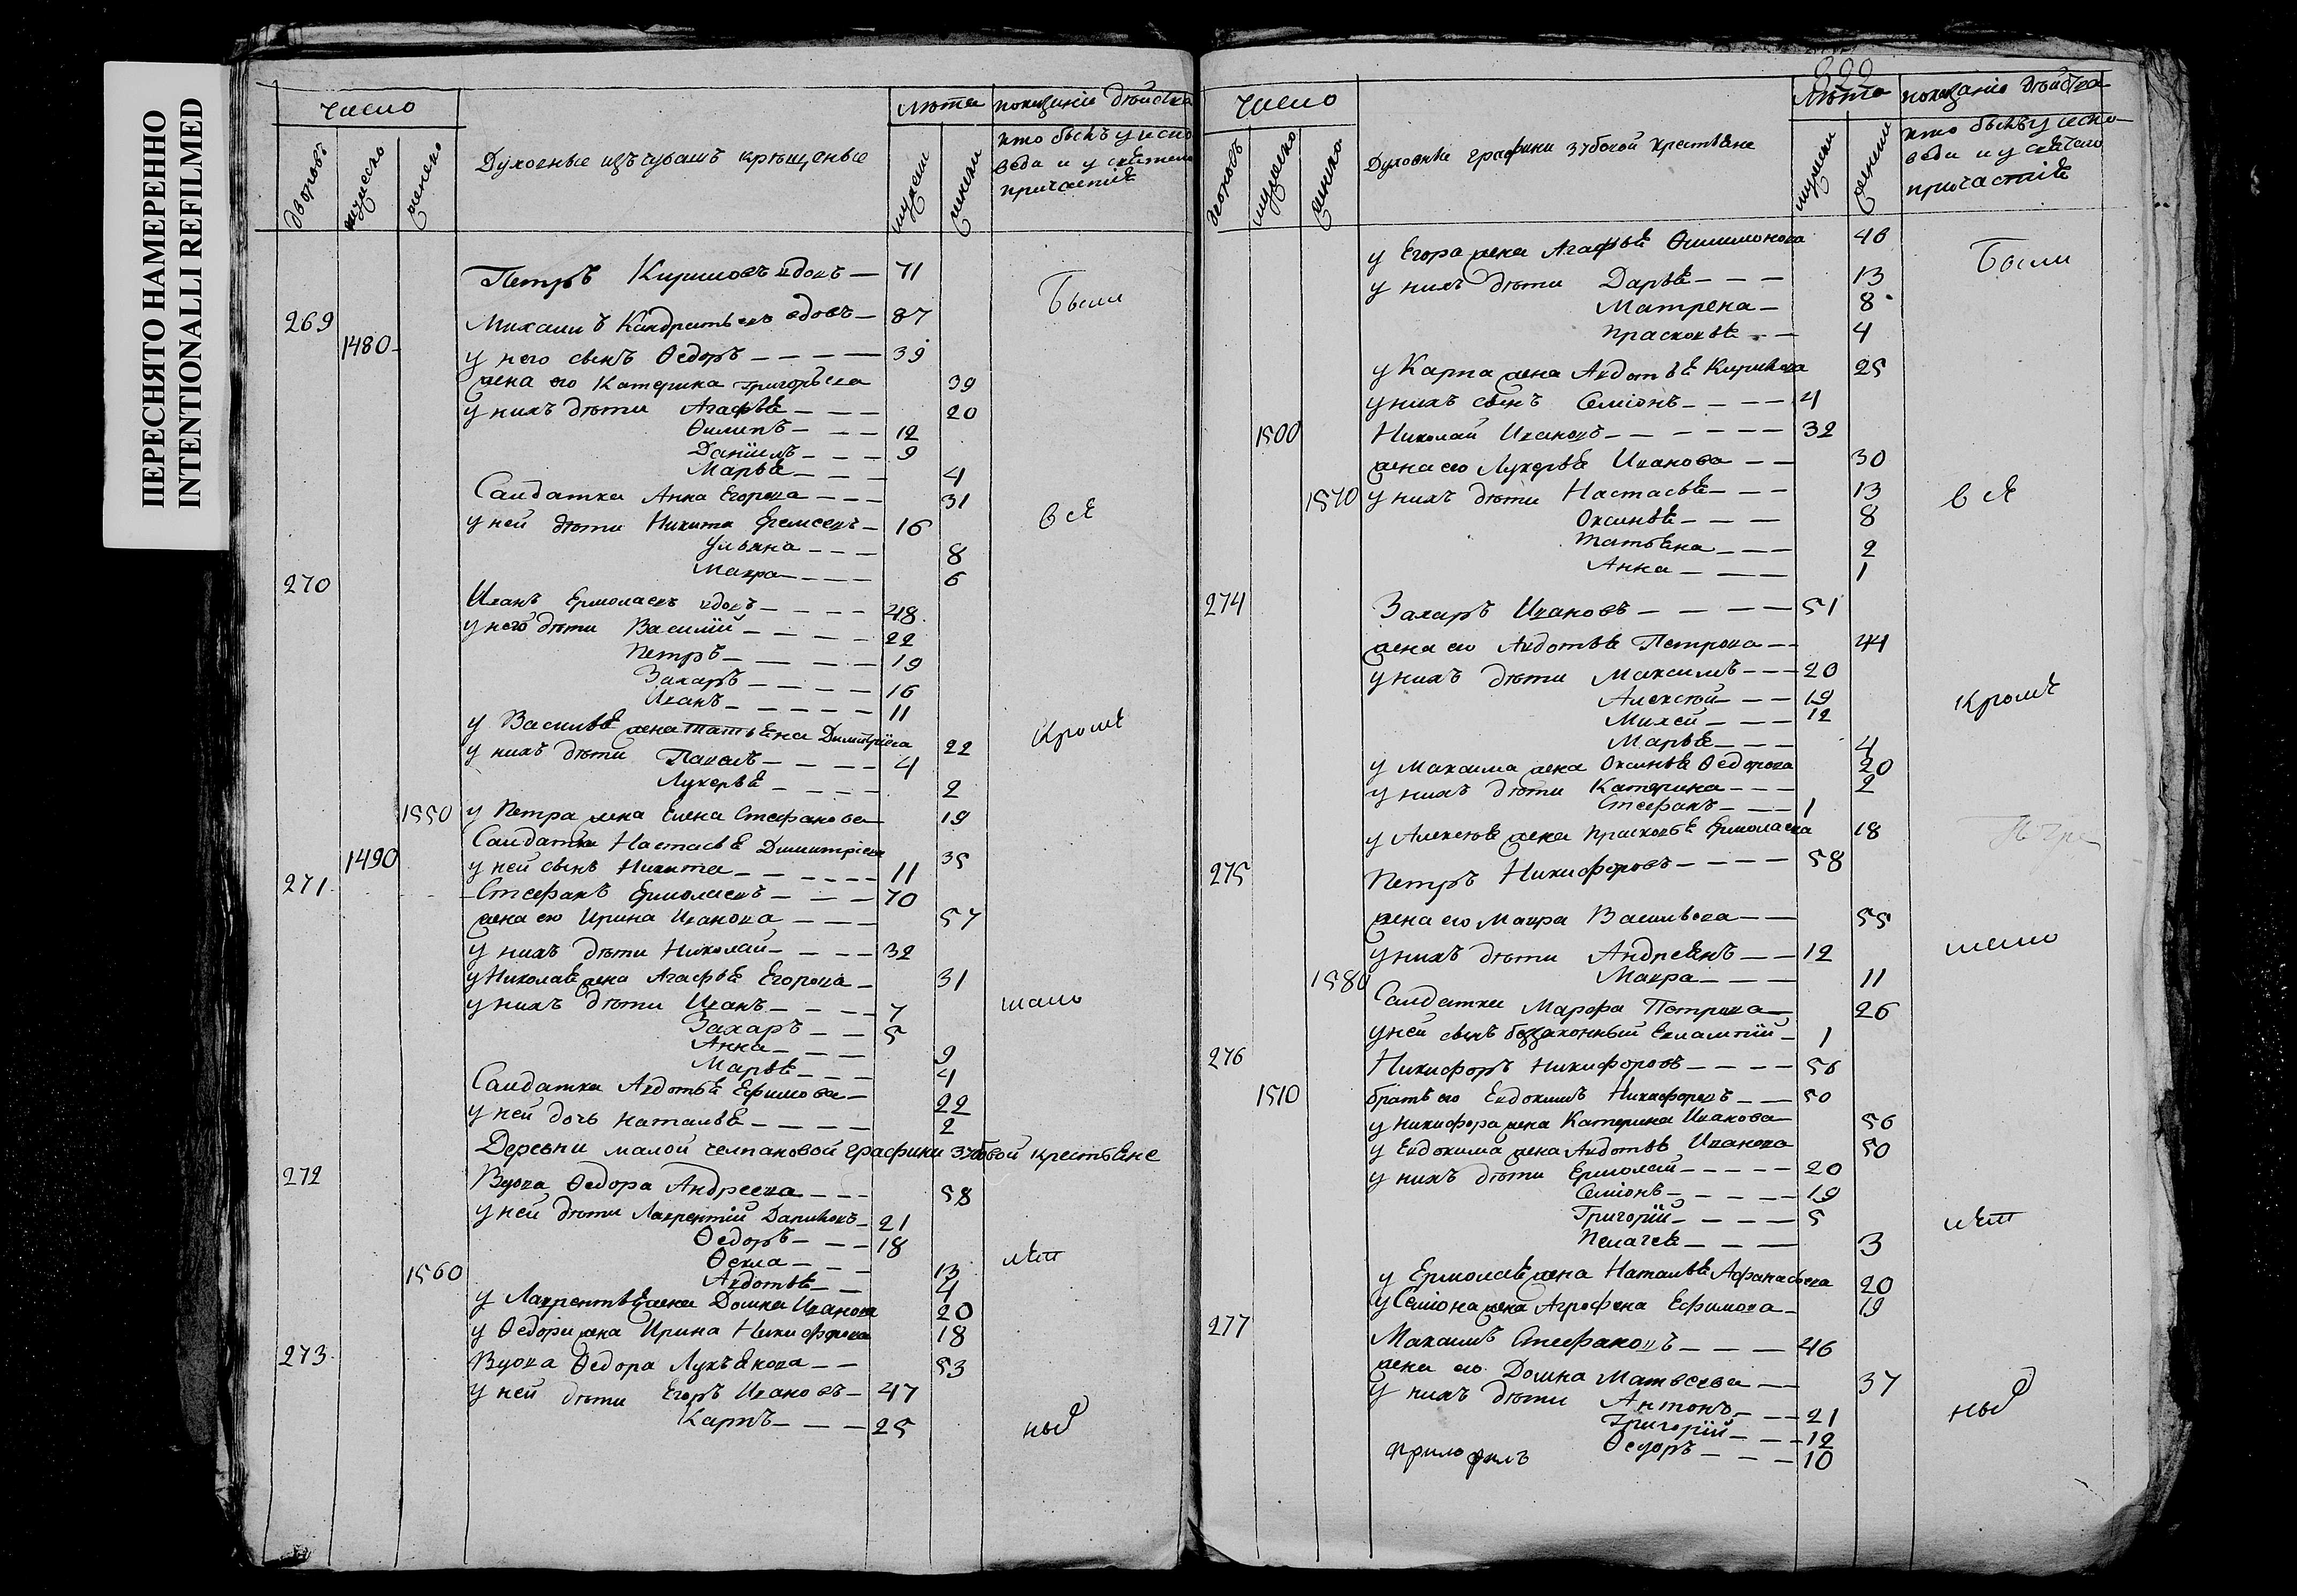 ПЕРЕСНЯТО НАМЕРЕННО
INTENTIONALLI REFILMED
число
дворовъ
мужеско
женско
Духовные изъ чувашъ крѣщеные
лѣта
мужески
женски
показаніе дѣйства
кто былъ у испо
веди и у святаго
причастіѣ
Петръ Кириловъ вдовъ — 71
269 Михаилъ Кандратьевъ вдовъ — 87
1480 у него сынъ Ѳедоръ — 39
жена его Катерина Григорьева 39
у нихъ дѣти Агафьѣ — 20
Ѳилипъ — 12
Даніилъ — 9
Марьѣ — 4
Салдатка Анна Егорова — 31
у ней дѣти Никита Еремеевъ — 16
Ульяна — 8
Мавра — 6
270 Иванъ Ермолаевъ вдовъ — 48
у него дѣти Василій — 22
Петръ — 19
Захаръ — 16
Иванъ — 11
у Васильѣ жена Татьѣна Димитріева 22
у нихъ дѣти Павелъ — 4
Лукерьѣ — 2
1550 у Петра жена Елена Стефанова 19
Салдатка Настасьѣ Димитріева 35
1490 у ней сынъ Никита — 11
271 Стефанъ Ермолаевъ — 70
жена ею Ирина Иванова — 57
у нихъ дѣти Николай — 32
у Николаѣ жена Агафьѣ Егорова — 31
у нихъ дѣти Иванъ — 7
Захаръ — 5
Анна — 9
Марьѣ — 4
Салдатка Авдотьѣ Ефимова — 22
у ней дочь Натальѣ — 2
Деревни малой челпановой графини Зубовой крестьѣне
272 Вдова Ѳедора Андреева — 58
у ней дѣти Лаврентій Даниловъ — 21
Ѳедоръ — 18
Ѳекла — 13
1560 Авдотьѣ — 4
у Лаврентьѣ жена Домна Иванова 20
у Ѳедора жена Ирина Никифорова 18
273 Вдова Ѳедора Лукъѣнова — 53
у ней дѣти Егоръ Ивановъ — 47
Карпъ — 25
Были
всѣ
Кромѣ
мало
лѣт
ныѵ
899
число
дворовъ
мужеско
женско
Духовные графини Зубовой крестьѣне
лѣта
мужески
женски
показаніе дѣйства
кто былъ у испо
веди и у святаго
причастіѣ
у Егора жена Агафьѣ Филимонова 46
у нихъ дѣти Дарьѣ — 13
Матрена — 8
Прасковьѣ — 4
у Карпа жена Авдотьѣ Кирилова 25
у нихъ сынъ Семіонъ — 4
1500 Николай Ивановъ — 32
жена ею Лукерьѣ Иванова — 30
1570 у нихъ дѣти Настасьѣ — 13
Оксиньѣ — 8
Татьѣна — 2
Анна — 1
274 Захаръ Ивановъ — 51
жена ею Авдотьѣ Петрова — 44
у нихъ дѣти Максимъ — 20
Алексѣй — 19
Михей — 12
Марьѣ — 4
у Максима жена Оксиньѣ Ѳедорова 20
у нихъ дѣти Катерина — 2
Стефанъ — 1
у Алексѣѣ жена Прасковьѣ Ермолаева 18
275 Петръ Никифоровъ — 58
жена его Мавра Васильева — 55
у нихъ дѣти Андреѣнъ — 12
1580 Мавра — 11
Салдатка Марфа Петрова — 26
у ней сынъ беззаконный Евлампій — 1
276 Никифоръ Никифоровъ — 56
1510 братъ ею Евдокимъ Никифоровъ — 50
у Никифора жена Катерина Иванова 56
у Евдокима жена Авдотьѣ Иванова 50
у нихъ дѣти Ермолай — 20
Семіонъ — 19
Григорій — 5
Пелагеѣ — 3
у Ермолаѣ жена Натальѣ Афанасьева 20
у Семіона жена Агрофена Ефимова — 19
277 Максимъ Стефановъ — 46
жена ею Домна Матвеева — 37
у нихъ дѣти Антонъ — 21
Григорій — 12
Ѳедоръ — 10
Были
всѣ
Кромѣ
мало
лѣт
ныѵ